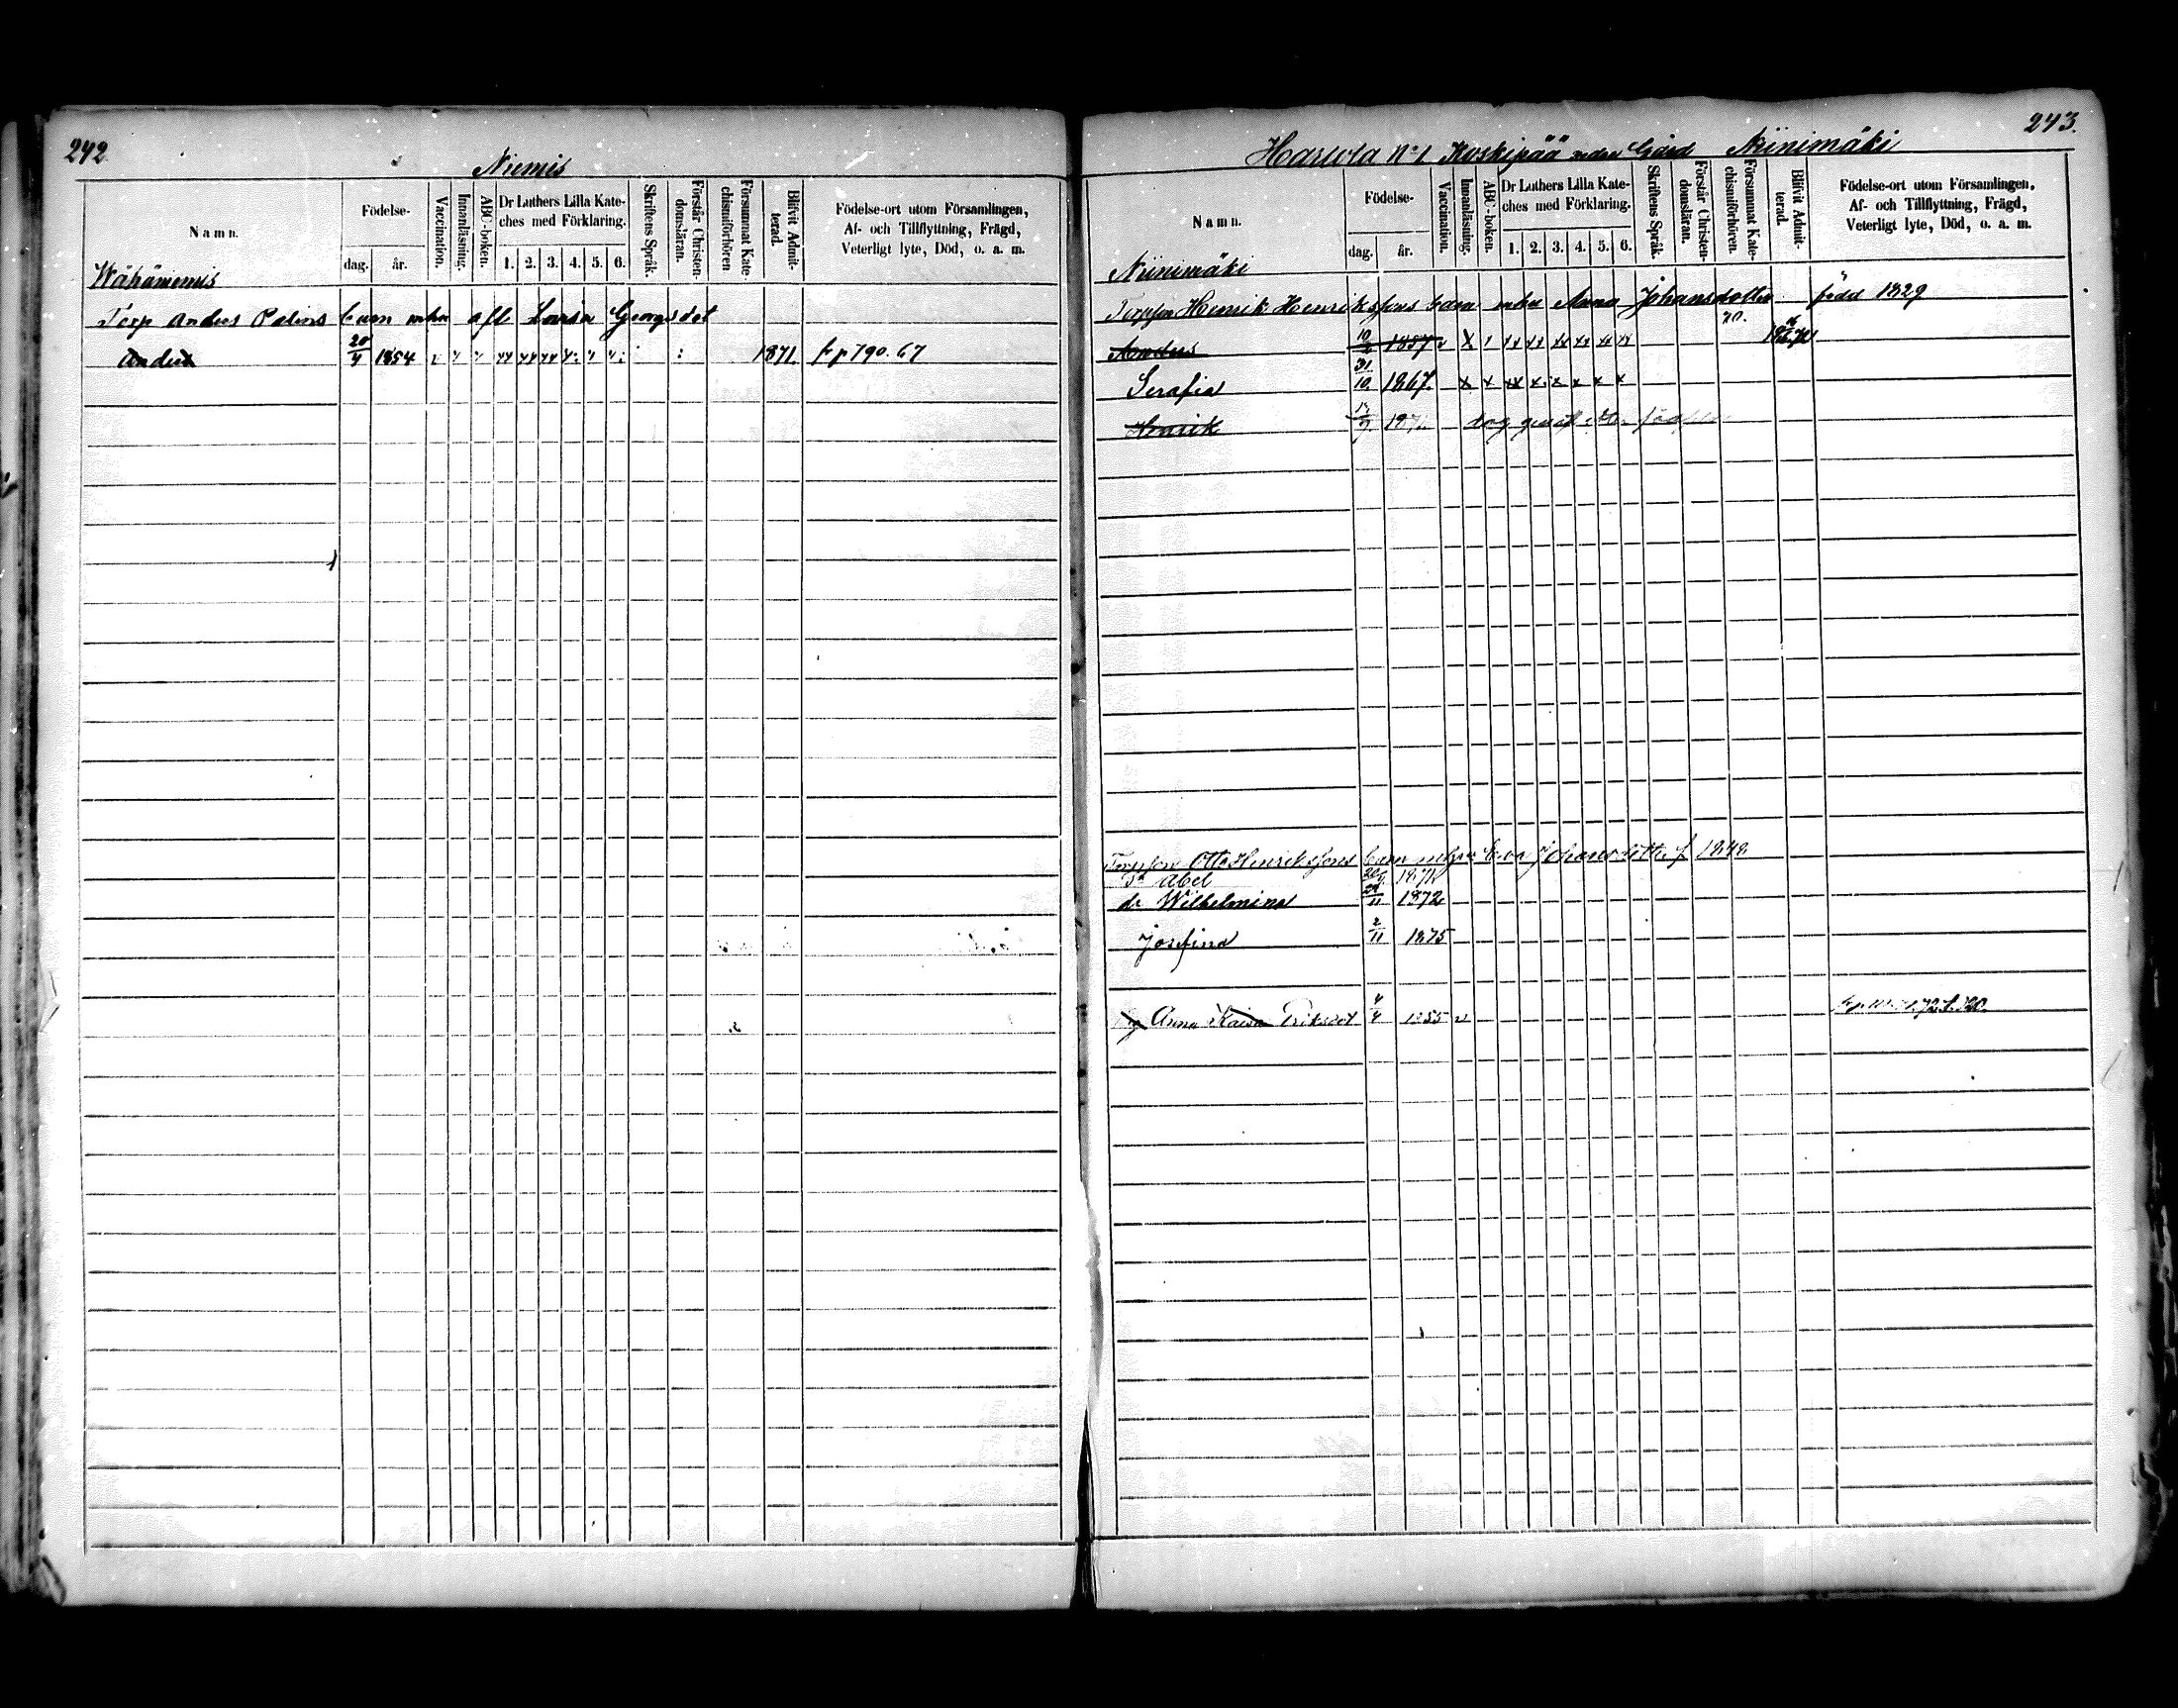 242
Niemis
Namn.
Födelse-
dag. år.
Vaccination.
Innanläsning.
ABC-boken.
Dr Luthers Lilla Kate-
ches med Förklaring.
1. 2. 3. 4. 5. 6.
Skriftens Språk.
Förstår Christen-
domsläran.
Försummat Kate-
chismiförhören
Blifvit Admit-
terad.
Födelse-ort utom Församlingen,
Af- och Tillflyttning, Frägd,
Veterligt lyte, Död, o. a. m.
Wähäniemis
Torp Anders Palins barn mha afl. Lovisa Georgsdot
Anders 20/4 1854 1871. fr p 790. 67
243.
Hartola No 1 Koskipää Gård Niinimäki
Namn.
Födelse-
dag. år.
Vaccination.
Innanläsning.
ABC-boken.
Dr Luthers Lilla Kate-
ches med Förklaring.
1. 2. 3. 4. 5. 6.
Skriftens Språk.
Förstår Christen-
domsläran.
Försummat Kate-
chismiförhören.
Blifvit Admit-
terad.
Födelse-ort utom Församlingen,
Af- och Tillflyttning, Frägd,
Veterligt lyte, Död, o. a. m.
Niinimäki
Henrik Henrikssons barn mha Anna Johansdotter född 1829
Anders 10/2 1857 70.
Serafia 31/10 1867
Henrik
Otto Henrikssons barn Eva Johansdotter f 1848
Abel
dr Wilhelmina 1872
Josefina 2/11 1875
Anna Kaisa Eriksdot 4/4 1855